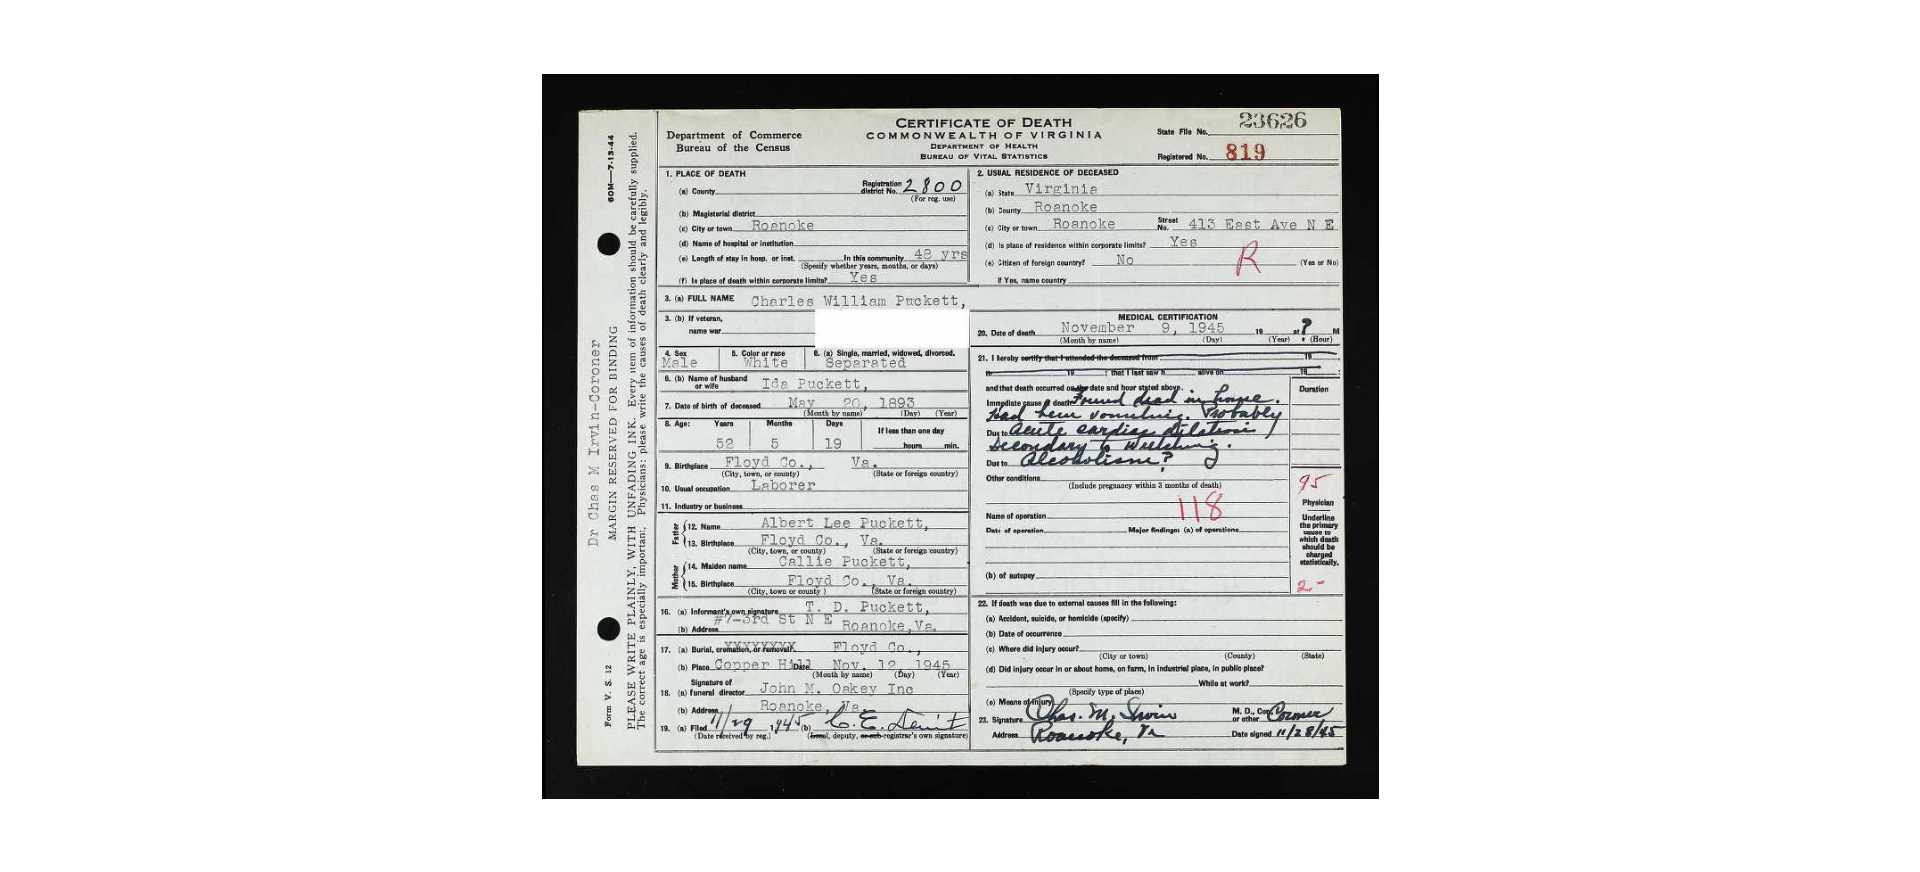 CERTIFICATE OF DEATH
COMMONWEALTH OF VIRGINIA
DEPARTMENT OF HEALTH
BUREAU OF VITAL STATISTICS
Department of Commerce
Bureau of the Census
State File No. 23626
Registered No. 819
60M—7-13-44
Dr Chas M Irvin-Coroner
MARGIN RESERVED FOR BINDING
PLEASE WRITE PLAINLY, WITH UNFADING INK. Every item of information should be carefully supplied.
The correct age is especially important. Physicians: please write the causes of death clearly and legibly.
Form V. S. 12
1. PLACE OF DEATH
(a) County
Registration district No. 2800
(For reg. use)
(b) Magisterial district
(c) City or town Roanoke
(d) Name of hospital or institution
(e) Length of stay in hosp. or inst. In this community 48 yrs
(Specify whether years, months, or days)
(f) Is place of death within corporate limits? Yes
2. USUAL RESIDENCE OF DECEASED
(a) State Virginia
(b) County Roanoke
(c) City or town Roanoke Street No. 413 East Ave N E
(d) Is place of residence within corporate limits? Yes
(e) Citizen of foreign country? No (Yes or No)
R
If Yes, name country
3. (a) FULL NAME Charles William Puckett,
3. (b) If veteran,
name war
4. Sex 5. Color or race 6. (a) Single, married, widowed, divorced.
Male White Separated
6. (b) Name of husband or wife Ida Puckett,
7. Date of birth of deceased May 20, 1893
(Month by name) (Day) (Year)
8. Age: Years Months Days If less than one day
52 5 19 hours min.
9. Birthplace Floyd Co., Va.
(City, town, or county) (State or foreign country)
10. Usual occupation Laborer
11. Industry or business
Father
12. Name Albert Lee Puckett,
13. Birthplace Floyd Co., Va.
(City, town, or county) (State or foreign country)
Mother
14. Maiden name Callie Puckett,
15. Birthplace Floyd Co., Va.
(City, town or county) (State or foreign country)
16. (a) Informant's own signature T. D. Puckett,
(b) Address #7-3rd St N E Roanoke,Va.
17. (a) Burial, cremation, or removal Floyd Co.,
(b) Place Copper Hill Date Nov. 12, 1945
(Month by name) (Day) (Year)
Signature of
18. (a) funeral director John M. Oakey Inc
(b) Address Roanoke, Va.
19. (a) Filed 11/29 1945 (b) C. E.
(Date received by reg.) (Local, deputy, or sub-registrar's own signature)
MEDICAL CERTIFICATION
20. Date of death November 9, 1945 19 at ? M
(Month by name) (Day) (Year) (Hour)
21. I hereby certify that I attended the deceased from 19
to 19 ; that I last saw h alive on 19 ;
and that death occurred on the date and hour stated above.
Duration
Immediate cause of death Found dead in home.
Had been vomiting. Probably
Due to Acute cardiac dilation
Secondary to
Due to Alcoholism?
Other conditions
(Include pregnancy within 3 months of death)
95
118
Name of operation
Date of operation Major findings: (a) of operations
(b) of autopsy
Physician
Underline the primary cause to which death should be charged statistically.
2-
22. If death was due to external causes fill in the following:
(a) Accident, suicide, or homicide (specify)
(b) Date of occurrence
(c) Where did injury occur?
(City or town) (County) (State)
(d) Did injury occur in or about home, on farm, in industrial place, in public place?
While at work?
(Specify type of place)
(e) Means of injury
23. Signature Chas. M. Irvin M. D., Cor. or other Coroner
Address Roanoke, Va Date signed 11/28/45